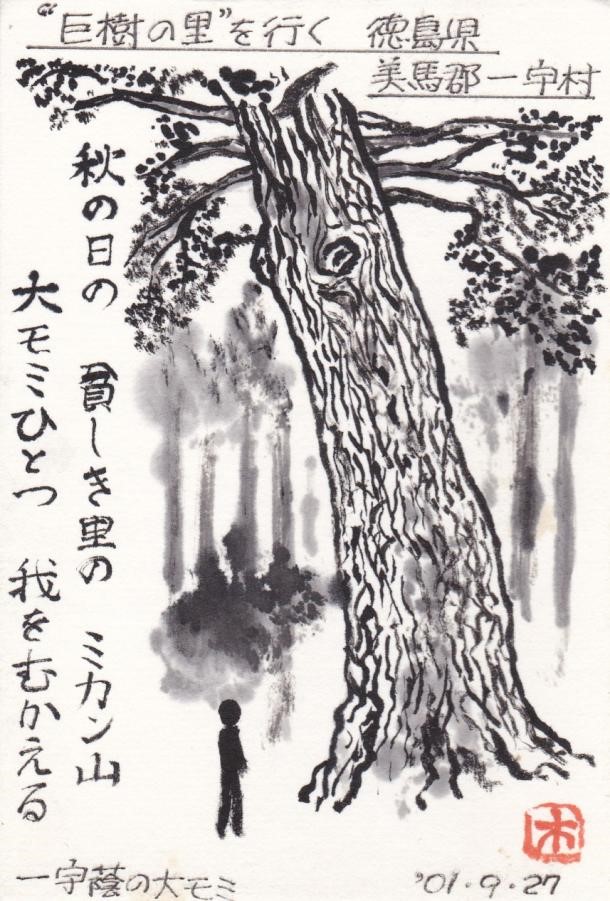 “巨樹の里”を行く 徳島県
美馬郡一宇村
秋の日の 貧しき里の ミカン山
大モミひとつ 我をむかえる
木
一宇蔭の大モミ
'01.9.27